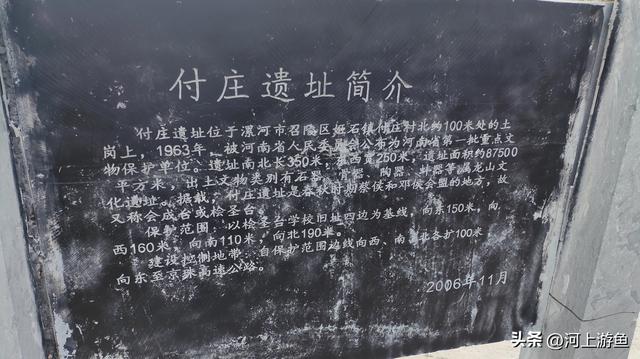 付庄遗址简介
付庄遗址位于漯河市召陵区姬石镇付庄村北约100米处的土
岗上，1963年，被河南省人民委员会公布为河南省第一批重点文
物保护单位。遗址南北长350米，东西宽250米，遗址面积约87500
平方米，出土文物类别有石器、骨器、陶器、蚌器等属龙山文
化遗址。据载，付庄遗址是春秋时期蔡侯和邓侯会盟的地方，故
又称会成台或桧圣台。
保护范围：以桧圣台学校旧址四边为基线，向东150米，向
西160米，向南110米，向北190米。
建设控制地带：自保护范围边线向西、南、北各扩100米
向东至京珠高速公路。
2006年11月
头条 @河上游鱼